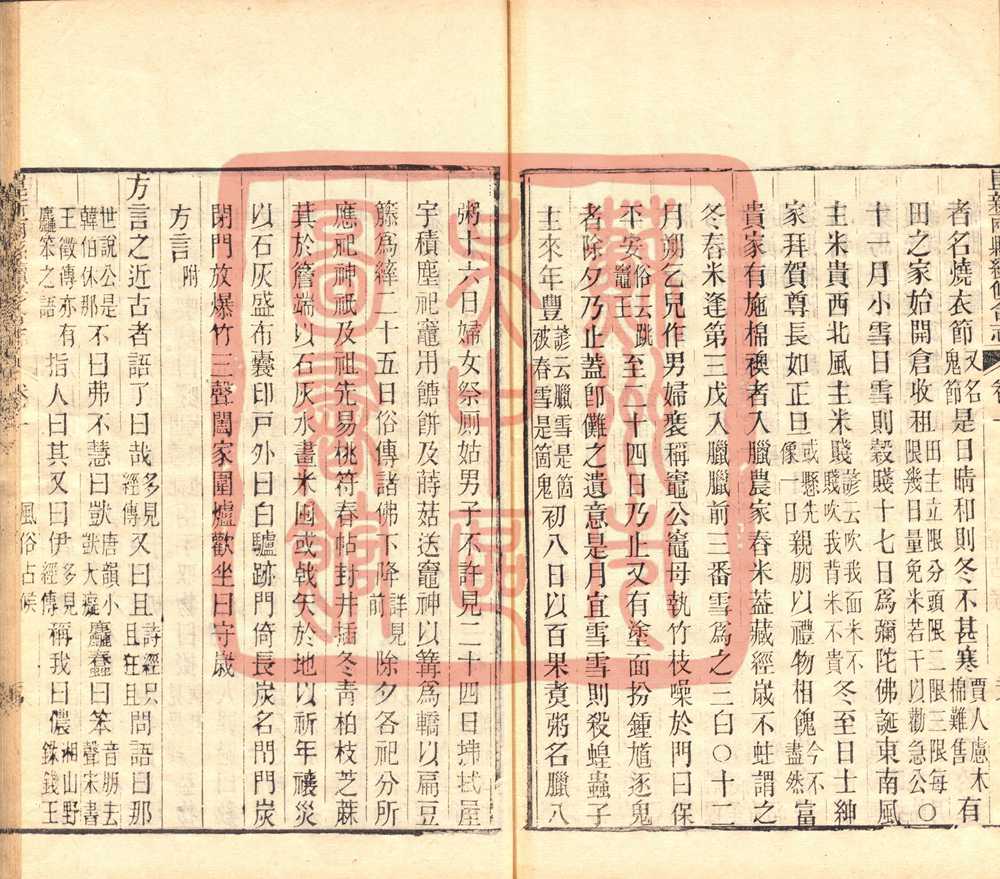 者名燒衣節又名鬼節是日晴和則冬不甚寒賈人慮木棉難售有
田之家始開倉收租田主立限分頭限二限三限每限幾日量免米若干以勸急公〇
十一月小雪日雪則穀賤十七日為彌陀佛誕東南風
主米貴西北風主米賤諺云吹我面米不賤吹我背米不貴冬至日士紳
家拜賀尊長如正旦或懸先像一日親朋以禮物相餽今不盡然富
貴家有施棉襖者入臘農家舂米蓋藏經歲不蛀謂之
冬舂米逢第三戊入臘臘前三番雪為之三白〇十二
月朔乞兒作男婦裝稱竈公竈母執竹枝噪於門曰保
平安俗云跳竈王至二十四日乃止又有塗面扮鍾馗逐鬼
者除夕乃止蓋即儺之遺意是月宜雪雪則殺蝗蟲子
主來年豐諺云臘雪是箇被春雪是箇鬼初八日以百果煑粥名臘八
粥十六日婦女祭厠姑男子不許見二十四日拂拭屋
宇積塵祀竈用餹餅及蒔菇送竈神以篝為轎以扁豆
籐為繂二十五日俗傳諸佛下降詳見前除夕各祀分所
應祀神祇及祖先易桃符春帖封井插冬青柏枝芝蔴
萁於簷端以石灰水畫米囤或戟矢於地以祈年禳災
以石灰盛布囊印戶外曰白驢跡門倚長炭名門門炭
閉門放爆竹三聲闔家圍爐歡坐曰守歲
方言附
方言之近古者語了曰哉多見經傳又曰且詩經只且狂且問語曰那
世說公是韓伯休那不曰弗不慧曰獃唐韻小獃大癡麤蠢曰笨音朋去聲宋書
王徵傳亦有麤笨之語指人曰其又曰伊多見經傳稱我曰儂湘山野錄錢王
風俗占候